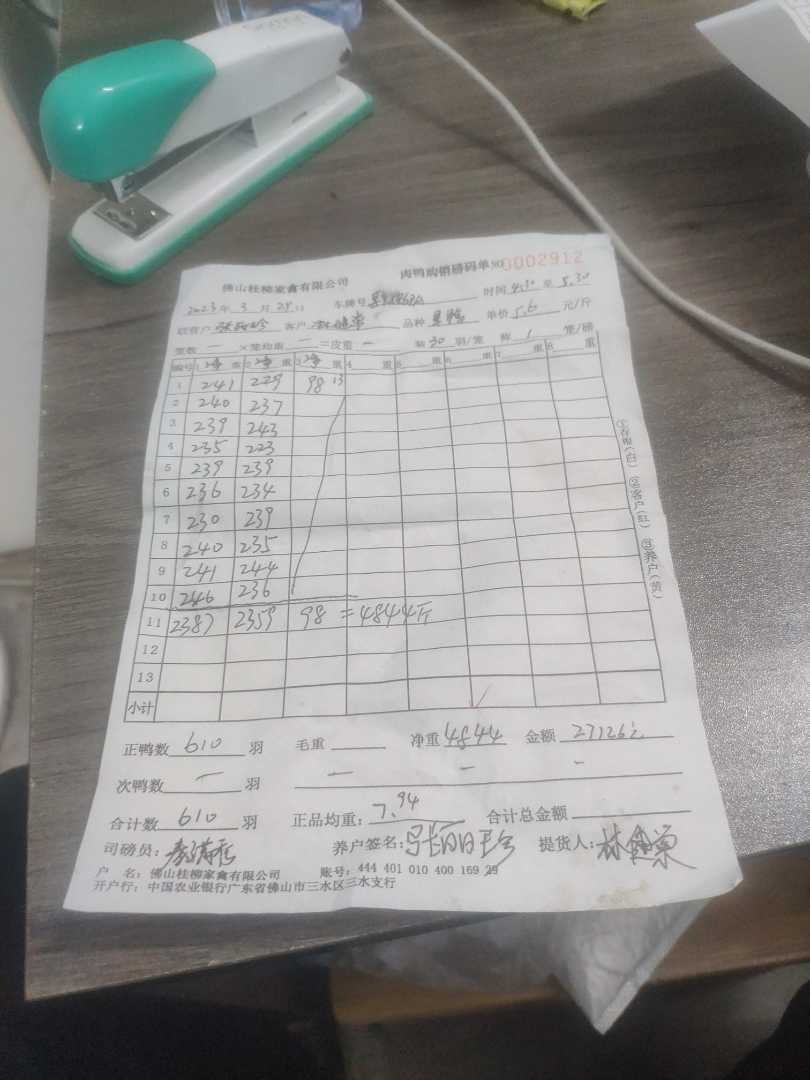 佛山桂柳家禽有限公司 肉鸭购销磅码单 NO 0002912
2023年 3月 29日 车牌号 时间 4:30 至 5.30
收货户 客户 林健荣 品种 单价 5.6 元/斤
笼数 一 ×笼均重 一 =皮重 一 装 30 羽/笼 称 1 笼/磅
编号 1 净 重 2 净 重 3 净 重 4 重 5 重 6 重 7 重 8 重
1 241 229 98 13
2 240 237
3 239 243
4 235 223
5 239 239
6 236 234
7 230 239
8 240 235
9 241 244
10 246 236
11 2387 2359 98 =4844斤
12
13
小计
①存根(白) ②客户(红) ③养户(黄)
正鸭数 610 羽 毛重 净重 4844 金额 27126元
次鸭数 一 羽 一 一 一
合计数 610 羽 正品均重: 7.94 合计总金额
司磅员: 养户签名: 提货人: 林健荣
户 名: 佛山桂柳家禽有限公司 账号: 444 401 010 400 169 29
开户行: 中国农业银行广东省佛山市三水区三水支行